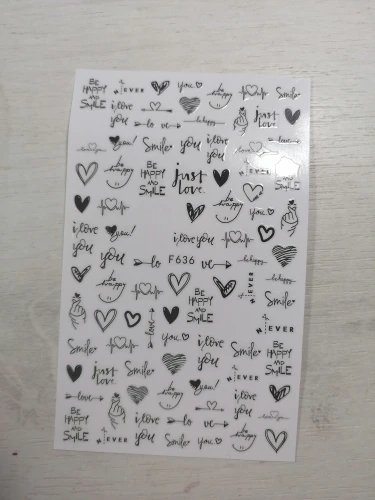 BE
HAPPY
AND
SMILE
EVER
you
be
happy
Smile
i love
you
just
love.
lo ve
be happy
you!
Smile
you
i love
you
love
be
happy
BE
HAPPY
AND
SMILE
just
love.
EVER
BE
HAPPY
AND
SMILE
be
happy
you
i love
you
you!
you
i love you
be happy
lo ve
F636
ve
be happy
be
happy
BE
HAPPY
AND
SMILE
EVER
Smile
love
you
i love
you
EVER
Smile
Smile
BE
HAPPY
AND
SMILE
just
love.
Smile
be
happy
you!
EVER
love
i love
you
BE
HAPPY
AND
SMILE
EVER
i love
you
lo ve
Smile
you
be
happy